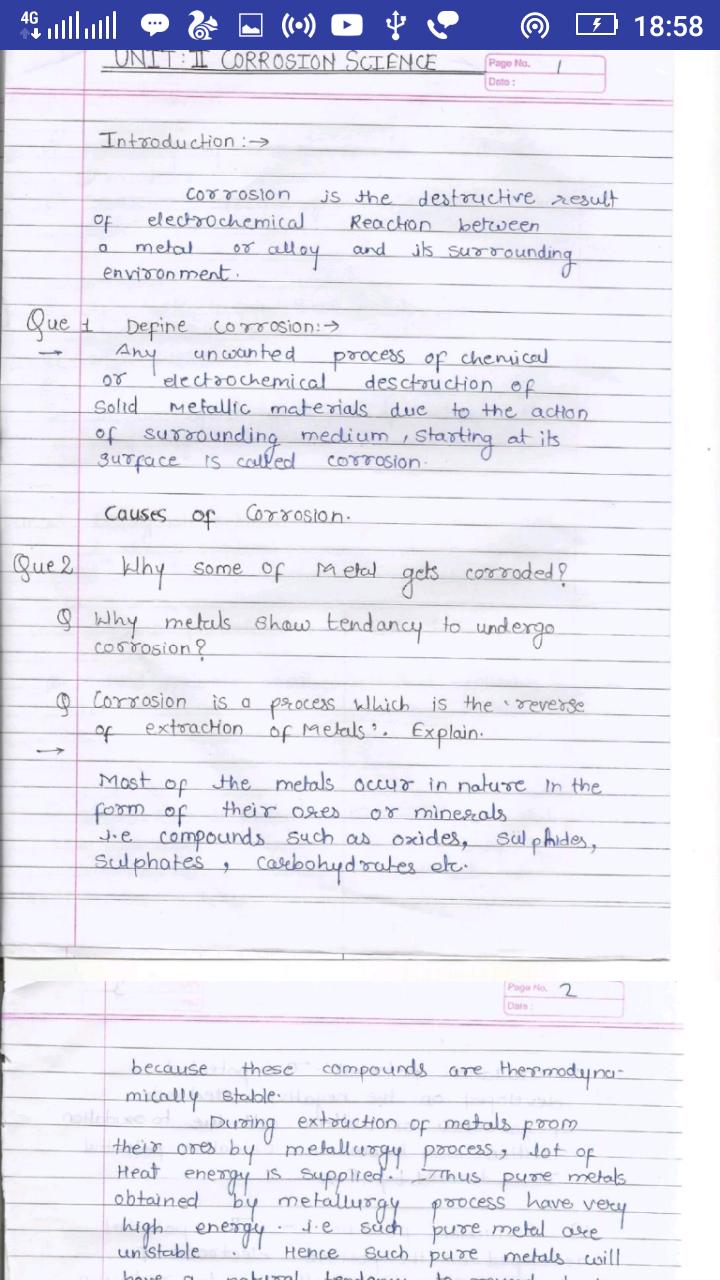 4G
18:58
UNIT: II CORROSION SCIENCE
Page No. 1
Date :
Introduction :→
Corrosion is the destructive result
of electrochemical Reaction between
a metal or alloy and its surrounding
environment.
Que 1 Define corrosion:→
→ Any unwanted process of chemical
or electrochemical desctruction of
Solid metallic materials due to the action
of surrounding medium, starting at its
surface is called corrosion.
Causes of Corrosion.
Que 2 Why some of Metal gets corroded?
Q Why metals show tendancy to undergo
corrosion?
Q Corrosion is a process which is the 'reverse
of extraction of Metals'. Explain.
→
Most of the metals occur in nature in the
form of their ores or minerals
i.e compounds such as oxides, sulphides,
sulphates, Carbohydrates etc.
Page No. 2
Date :
because these compounds are thermodyna-
mically stable.
During extraction of metals from
their ores by metallurgy process, lot of
Heat energy is supplied. Thus pure metals
obtained by metallurgy process have very
high energy. i.e such pure metal are
unstable. Hence such pure metals will
have a natural tendency to